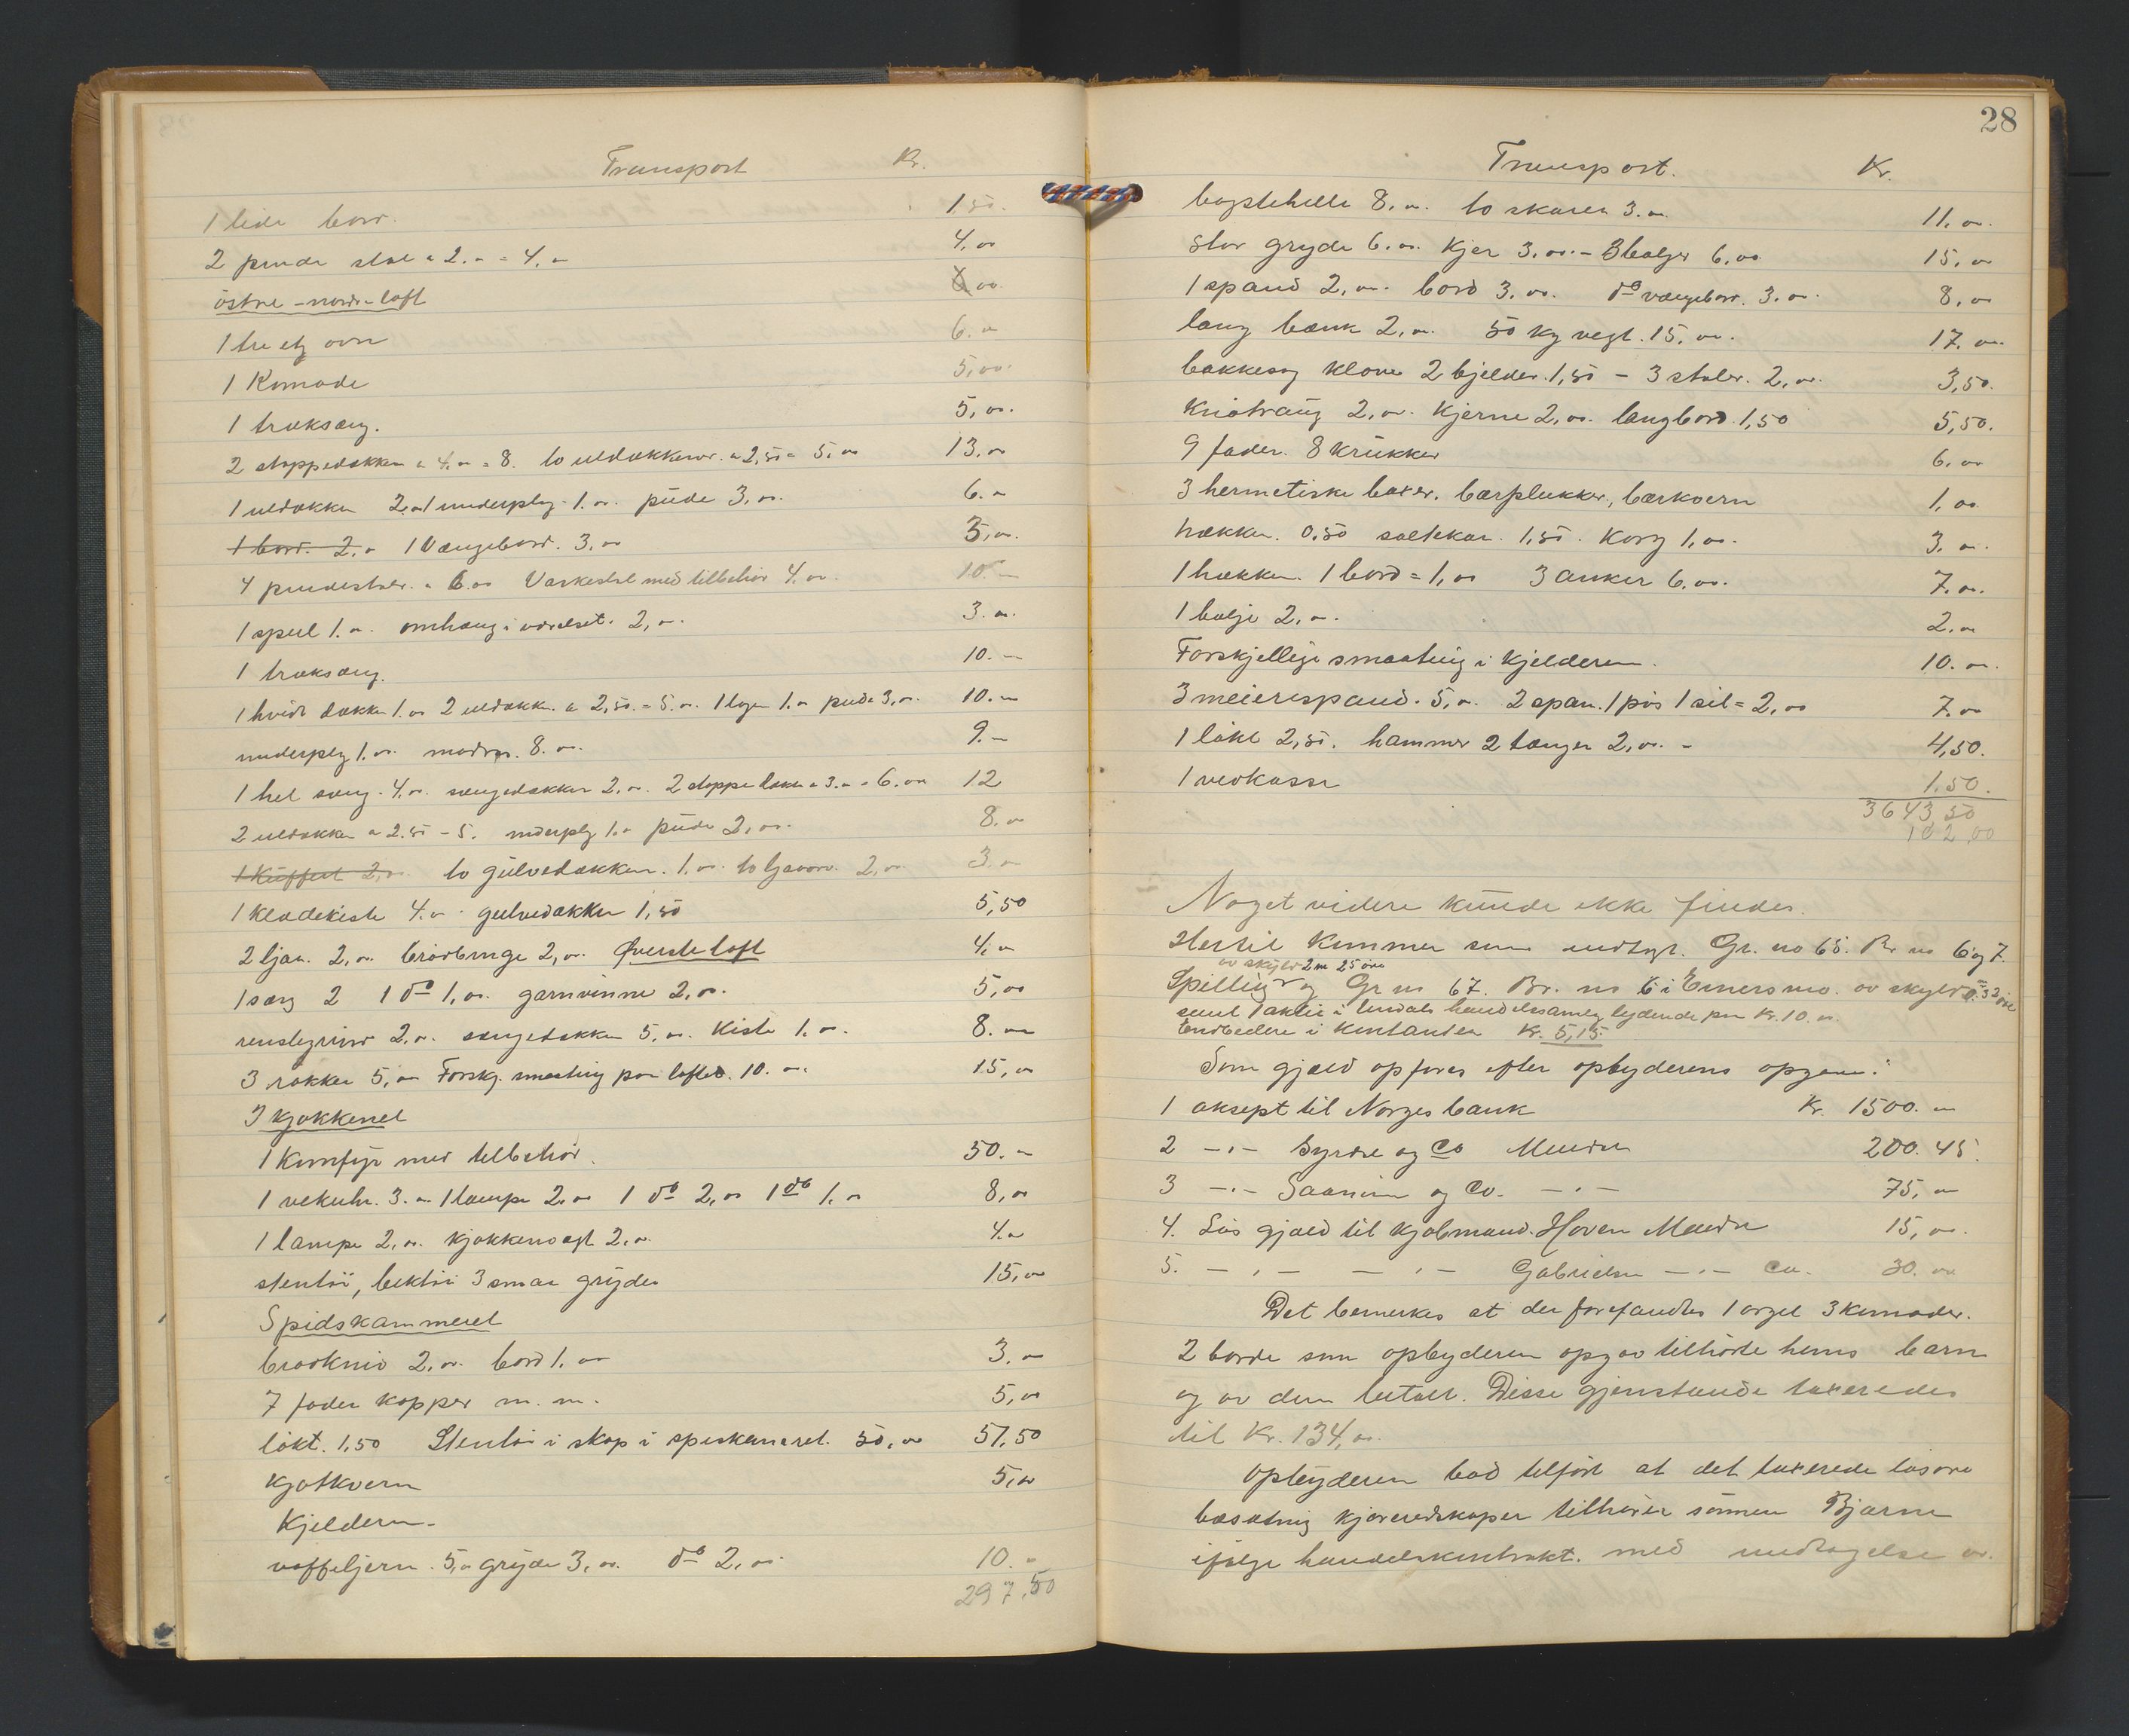 Transport Kr.
1 lide bord. 1.50.
2 pinde stole a 2.- = 4.- 4.00
östre-nordr-loft 6.00
1 tre etg ovn 6.-
1 Komode 5,00.
1 træksæng. 5,00.
2 stoppedækken a 4.- = 8. to uldækkener. a 2,50 = 5.00 13.00
1 uldækken 2.- 1 underplag 1.00. püde 3,00. 6.-
1 bord. 2.- 1 Vængebord. 3,00 3,00.
4 pindestoler. a 6.00 Vaskestel med tilbehör 4.00. 10.-
1 speil 1.00. omhæng i værelset. 2,-. 3.00.
1 træksæng. 10.-
1 hvidt dække 1.00 2 uldækk. a 2,50. = 5.00. 1 lagen 1.- püde 3,-. 10.-
underplag 1.00. madras. 8.00. 9.-
1 hel seng. 4.00. sengedækken 2.00. 2 stoppedækken a 3.- = 6.00 12
2 uldækken a 2.50 - 5. underplag 1.- püde 2,00. 8.00
1 Küffert 2,00. to gülvedækken. 1.00. to ljaaorv. 2,00. 3.00
1 klædekiste 4.00. gulvedækken 1,50 5,50
2 ljaa. 2,00. brödbringe 2,00. Øverste loft 4.00
1 sæng 2 1 do 1,00. garnvinne 2,00. 5,00
rensegrind 2.00. sængedækken 5,00. Kiste 1.00. 8.00
3 rokker 5,00 Forskj. smaating paa loftet. 10.00. 15,00
I kjøkkenet
1 Komfyr med tilbehör. 50.-
1 vekuhr. 3.00. 1 lampe 2.00 1 do 2,00 1 do 1.00 8,00
1 lampe 2,00. kjøkkenvægt 2.00. 4.00
stentöi, bliktöi 3 smaa grÿder 15,00
Spidskammeret
brødkniv 2,00. bord 1.00 3.00
7 fader kopper m.m. 5,00
lökt. 1,50 Stentöi i skap i spiskameret. 50.00 51,50
Kjøtkvern 5,00
Kjelderen.
vaffeljern. 5,00 grÿde 3,00. do 2,00. 10.00
297,50
28
Transport. Kr.
bagstehelle 8.00. to skarer 3.00. 11.00.
Stor gryde 6.00. Kjer 3.00.- 3 baljer 6,00 15.00
1 spand 2,00. bord 3.00. do vængebord. 3.00. 8,00
lang bænk 2,00. 50 kg vegt. 15,00. 17.00.
bakkesag klover 2 bjelder. 1,50 - 3 stoler. 2,00. 3,50.
Knivtraüg 2,00. Kjerne 2,00. langbord. 1,50 5,50.
9 fader. 8 krükker 6.00
3 hermetiske bokser. bærplukker, bærkvern 1,00
hækker. 0.50 saltekar. 1,50. Korg 1,00. 3.00.
1 hækker. 1 bord = 1,00 3 anker 6,00. 7.00.
1 balje 2,00. 2.00
Forskjellige smaating i Kjelderen. 10.00.
3 meierispand. 5,00. 2 span. 1 pös 1 sil = 2,00 7.00
1 lökt 2,50. hammer 2 tænger 2,00. - 4,50.
1 vedkasse 1.50.
3643,50
102,00
Noget videre künde ikke findes.
Hertil kommer som utlagt. Gr. no 65. Br no 6 og 7.
av skyld 2 m 25 öre
Spilling og Gr no 67. Br. no 6 i Emersmo. av skyld 0.32 öre
samt 1 aktie i Undals handelssamlag lydende paa Kr. 10.00.
Endvidere i kontanter Kr. 5,15.
Som gjæld opføres efter opbyderens opgave:
1 aksept til Norges bank Kr. 1500.00
2 -"- Syrdal og Co Mandal 200.45.
3 -"- Saanum og Co. -"- 75,00
4. Løs gjæld til kjøbmand. Hoven Mandal 15,00.
5. -"- -"- Gabrielsen -"- Co. 30.00
Det bemerkes at der forefandtes 1 orgel 3 komoder.
2 borde som opbyderen opgav tilhörte hens barn
og av dem betalt. Disse gjenstande taxeredes
til Kr. 134,00.
Opbÿderen bad tilført at det taxerede løsøre
besætning kjøreredskaper tilhörer sönnen Bjarne
ifølge handelskontrakt. med undtagelse av.